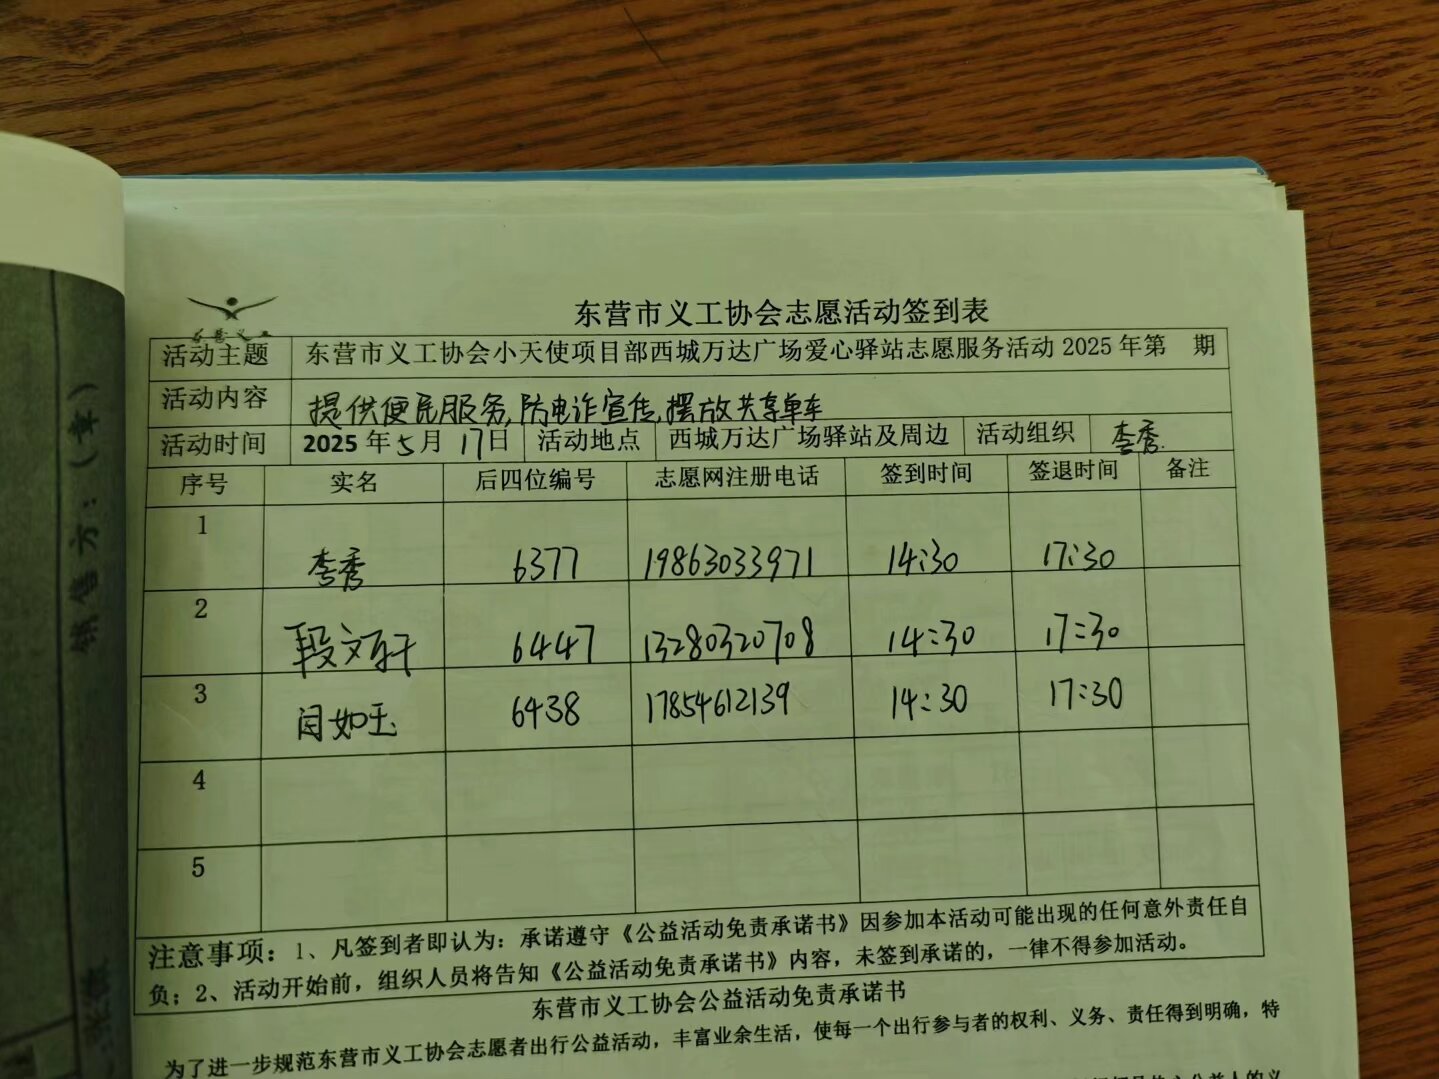 东营义工
东营市义工协会志愿活动签到表
活动主题 东营市义工协会小天使项目部西城万达广场爱心驿站志愿服务活动 2025 年第 期
活动内容 提供便民服务,防电诈宣传,摆放共享单车
活动时间 2025 年 5 月 17 日 活动地点 西城万达广场驿站及周边 活动组织 李秀
序号 实名 后四位编号 志愿网注册电话 签到时间 签退时间 备注
1 李秀 6377 19863033971 14:30 17:30
2 段文轩 6447 13280320708 14:30 17:30
3 闫如玉 6438 17854612139 14:30 17:30
4
5
注意事项：1、凡签到者即认为：承诺遵守《公益活动免责承诺书》因参加本活动可能出现的任何意外责任自
负；2、活动开始前，组织人员将告知《公益活动免责承诺书》内容，未签到承诺的，一律不得参加活动。
东营市义工协会公益活动免责承诺书
为了进一步规范东营市义工协会志愿者出行公益活动，丰富业余生活，使每一个出行参与者的权利、义务、责任得到明确，特
销售方：(章)